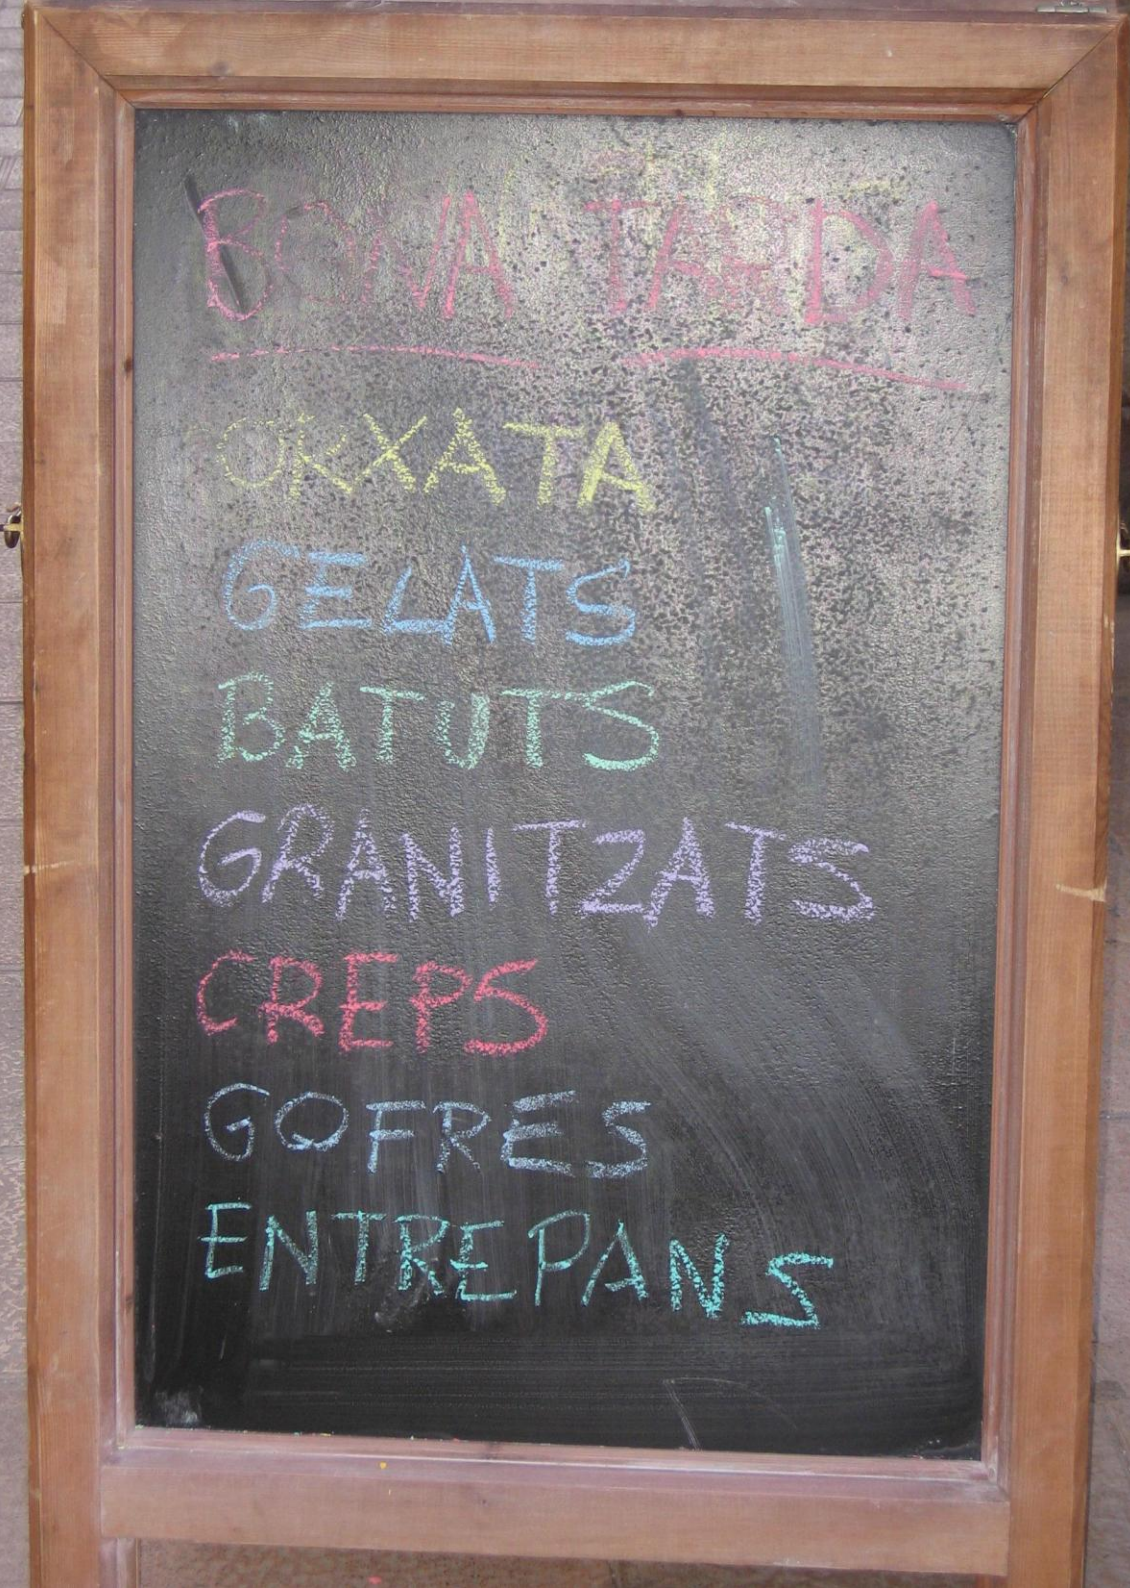 BONA TARDA
ORXATA
GELATS
BATUTS
GRANITZATS
CREPS
GOFRES
ENTREPANS